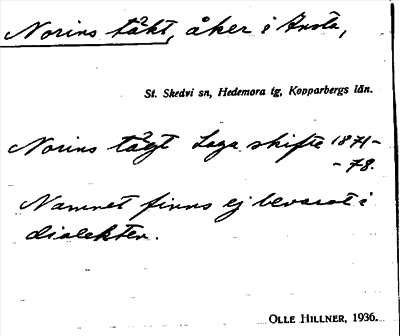 Norins täkt, åker i Arsta,
St. Skedvi sn, Hedemora tg, Kopparbergs län.
Norins tägt Laga skifte 1871-
-78.
Namnet finns ej bevarat i
dialekten.
OLLE HILLNER, 1936.